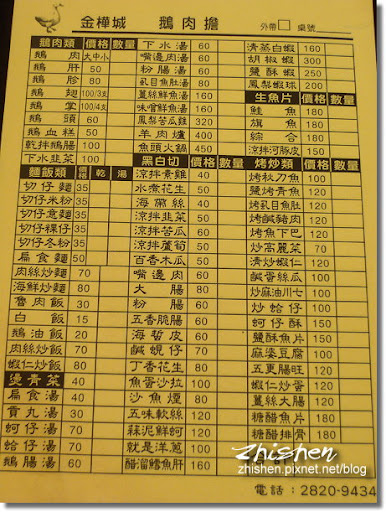 金樺城 鵝肉擔 外帶□ 桌號
鵝肉類 價格 數量
鵝肉 大中小
鵝肝 50
鵝胗 80
鵝翅 100/3支
鵝掌 100/4支
鵝頭 60
鵝血糕 50
乾拌鵝腸 100
下水韭菜 100
麵飯類 價格 乾 湯
切仔麵 35
切仔米粉 35
切仔意麵 35
切仔粿仔 35
切仔冬粉 35
扁食麵 50
肉絲炒麵 70
海鮮炒麵 80
魯肉飯 30
白飯 15
鵝油飯 20
肉絲炒飯 70
蝦仁炒飯 80
燙青菜 40
扁食湯 40
貢丸湯 30
蚵仔湯 50
蛤仔湯 50
鵝腸湯 60
下水湯 60
嘴邊肉湯 60
粉腸湯 60
虱目魚肚湯
薑絲鮮魚湯
味噌鮮魚湯
鳳梨苦瓜雞 320
羊肉爐 400
魚頭火鍋
黑白切 價格 數量
涼拌煮雞 40
水煮花生 50
海帶絲 40
涼拌韭菜 50
涼拌苦瓜 60
涼拌蘆筍 50
百香木瓜 50
嘴邊肉 60
大腸 80
粉腸 60
五香脆腸 60
海蜇皮 60
鹹蜆仔 60
丁香花生 80
魚蛋沙拉 100
沙魚煙 80
五味軟絲 120
蒜泥鮮蚵 120
就是洋蔥 100
醋溜鱈魚肝 160
清蒸白蝦 160
胡椒蝦 300
鹽酥蝦
鳳梨蝦球 200
生魚片 價格 數量
鮭魚 180
旗魚 180
綜合 180
涼拌河豚皮
烤炒類 價格 數量
烤秋刀魚 100
鹽烤香魚 120
烤虱目魚肚 120
烤鹹豬肉 120
烤魚下巴 120
炒高麗菜 70
清炒蝦仁 120
鹹蛋絲瓜 100
炒麻油川七 100
炒蛤仔 100
蚵仔酥 150
鹽酥魚片 150
麻婆豆腐 100
五更腸旺 120
薑絲大腸 120
糖醋魚片 160
糖醋排骨 180
電話：2820-9434
zhishen
zhishen.pixnet.net/blog